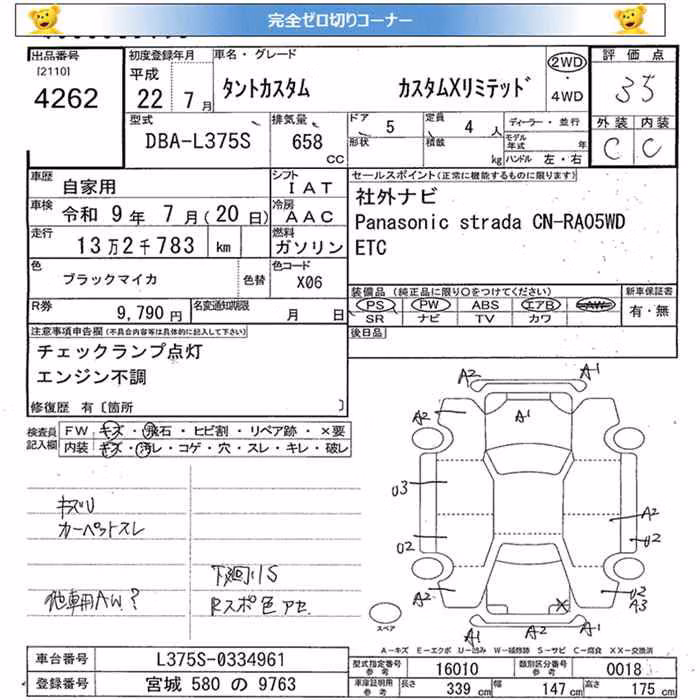 完全ゼロ切りコーナー
出品番号
[2110]
4262
初度登録年月
平成
22 年 7 月
車名・グレード
タントカスタム カスタムXリミテッド
2WD
・
4WD
評価点
35
外装 内装
C C
型式
DBA-L375S
排気量
658 CC
ドア 5
形状
定員 4 人
積載 kg
ディーラー・並行
モデル年式 年
ハンドル 左・右
車歴 自家用
シフト IAT
車検 令和 9年 7月(20日)
冷房 AAC
走行 13万2千783 km
燃料 ガソリン
色 ブラックマイカ 色替
色コード X06
R券 9,790円
名変通知期限 月 日
セールスポイント(正常に機能するものに限ります)
社外ナビ
Panasonic strada CN-RA05WD
ETC
装備品(純正品に限り○をつけてください)
PS PW ABS エアB AW
SR ナビ TV カワ
新車保証書
有・無
後日品
注意事項申告欄(不具合内容等は具体的に記入して下さい)
チェックランプ点灯
エンジン不調
修復歴 有〔箇所 〕
検査員記入欄
FW キズ・飛石・ヒビ割・リペア跡・×要
内装 キズ・汚レ・コゲ・穴・スレ・キレ・破レ
キズU
カーペットスレ
下廻りS
他車用AW?
Rスポ色アセ
A2 A1
A2 A1
U3
A2
U2 U2
A2 U2
A3
X
A1 A2 A1
スペア
A-キズ E-エクボ U-凹み W-補修跡 S-サビ C-腐食 XX-交換済
車台番号 L375S-0334961
登録番号 宮城 580 の 9763
型式指定番号 参考 16010
類別区分番号 参考 0018
車庫証明用 参考 長さ 339 cm 幅 147 cm 高さ 175 cm